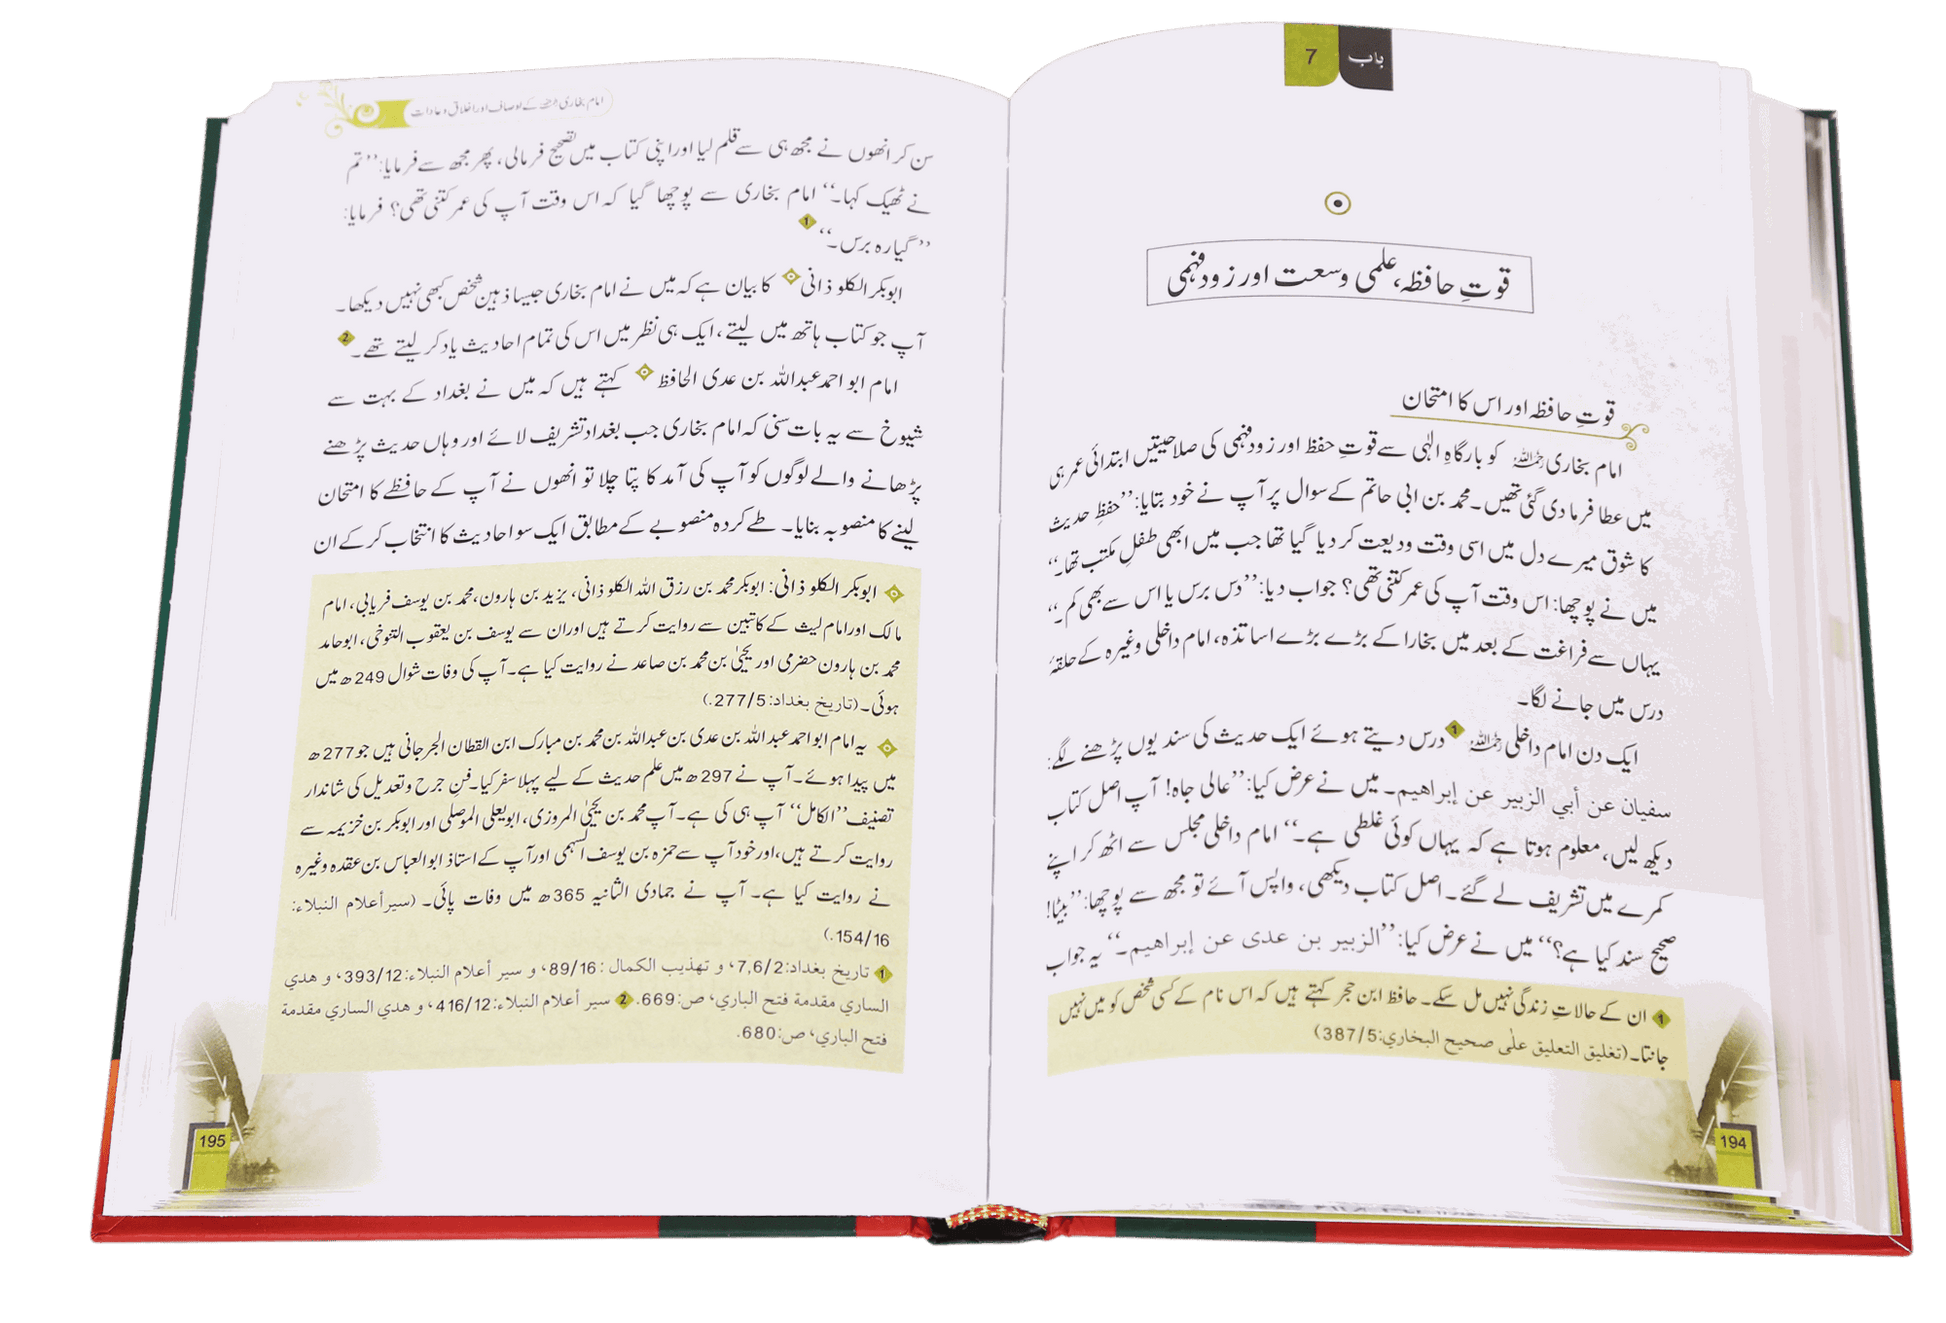 باب 7
قوتِ حافظہ، علمی وسعت اور زود فہمی
قوتِ حافظہ اور اس کا امتحان
امام بخاری رحمہ اللہ کو بارگاہِ الٰہی سے قوتِ حفظ اور زود فہمی کی صلاحیتیں ابتدائی عمر ہی
میں عطا فرما دی گئی تھیں۔ محمد بن ابی حاتم کے سوال پر آپ نے خود بتایا: ’’حفظِ حدیث
کا شوق میرے دل میں اسی وقت ودیعت کر دیا گیا تھا جب میں ابھی طفلِ مکتب تھا۔‘‘
میں نے پوچھا: اس وقت آپ کی عمر کتنی تھی؟ جواب دیا: ’’دس برس یا اس سے بھی کم۔‘‘
یہاں سے فراغت کے بعد میں بخارا کے بڑے بڑے اساتذہ، امام داخلی وغیرہ کے حلقۂ
درس میں جانے لگا۔
ایک دن امام داخلی رحمہ اللہ 1 درس دیتے ہوئے ایک حدیث کی سند یوں پڑھنے لگے:
سفیان عن أبي الزبیر عن إبراهیم۔ میں نے عرض کیا: ’’عالی جاہ! آپ اصل کتاب
دیکھ لیں، معلوم ہوتا ہے کہ یہاں کوئی غلطی ہے۔‘‘ امام داخلی مجلس سے اٹھ کر اپنے
کمرے میں تشریف لے گئے۔ اصل کتاب دیکھی، واپس آئے تو مجھ سے پوچھا: ’’بیٹا!
صحیح سند کیا ہے؟‘‘ میں نے عرض کیا: ’’الزبیر بن عدی عن إبراهیم۔‘‘ یہ جواب
1 ان کے حالاتِ زندگی نہیں مل سکے۔ حافظ ابن حجر کہتے ہیں کہ اس نام کے کسی شخص کو میں نہیں
جانتا۔ (تغلیق التعلیق علٰی صحیح البخاري: 387/5)
194
امام بخاری رحمہ اللہ کے اوصاف اور اخلاق و عادات
سن کر انھوں نے مجھ ہی سے قلم لیا اور اپنی کتاب میں تصحیح فرمالی، پھر مجھ سے فرمایا: ’’تم
نے ٹھیک کہا۔‘‘ امام بخاری سے پوچھا گیا کہ اس وقت آپ کی عمر کتنی تھی؟ فرمایا:
’’گیارہ برس۔‘‘ 1
ابوبکر الکلوذانی کا بیان ہے کہ میں نے امام بخاری جیسا ذہین شخص کبھی نہیں دیکھا۔
آپ جو کتاب ہاتھ میں لیتے، ایک ہی نظر میں اس کی تمام احادیث یاد کر لیتے تھے۔ 2
امام ابو احمد عبداللہ بن عدی الحافظ کہتے ہیں کہ میں نے بغداد کے بہت سے
شیوخ سے یہ بات سنی کہ امام بخاری جب بغداد تشریف لائے اور وہاں حدیث پڑھنے
پڑھانے والے لوگوں کو آپ کی آمد کا پتا چلا تو انھوں نے آپ کے حافظے کا امتحان
لینے کا منصوبہ بنایا۔ طے کردہ منصوبے کے مطابق ایک سو احادیث کا انتخاب کر کے ان
ابوبکر الکلوذانی: ابوبکر محمد بن رزق اللہ الکلوذانی، یزید بن ہارون، محمد بن یوسف فریابی، امام
مالک اور امام لیث کے کاتبین سے روایت کرتے ہیں اور ان سے یوسف بن یعقوب التنوخی، ابو حامد
محمد بن ہارون حضرمی اور یحییٰ بن محمد بن صاعد نے روایت کیا ہے۔ آپ کی وفات شوال 249ھ میں
ہوئی۔ (تاریخ بغداد: 277/5.)
یہ امام ابو احمد عبد اللہ بن عدی بن عبداللہ بن محمد بن مبارک ابن القطان الجرجانی ہیں جو 277ھ
میں پیدا ہوئے۔ آپ نے 297ھ میں علم حدیث کے لیے پہلا سفر کیا۔ فنِ جرح و تعدیل کی شاندار
تصنیف ’’الکامل‘‘ آپ ہی کی ہے۔ آپ محمد بن یحییٰ المروزی، ابویعلی الموصلی اور ابوبکر بن خزیمہ سے
روایت کرتے ہیں، اور خود آپ سے حمزہ بن یوسف السہمی اور آپ کے استاذ ابو العباس بن عقدہ وغیرہ
نے روایت کیا ہے۔ آپ نے جمادی الثانیہ 365ھ میں وفات پائی۔ (سیر أعلام النبلاء:
154/16.)
1 تاریخ بغداد: 7,6/2، و تهذیب الکمال: 89/16، و سیر أعلام النبلاء: 393/12، و هدي
الساري مقدمة فتح الباري، ص: 669. 2 سیر أعلام النبلاء: 416/12، و هدي الساري مقدمة
فتح الباري، ص: 680.
195